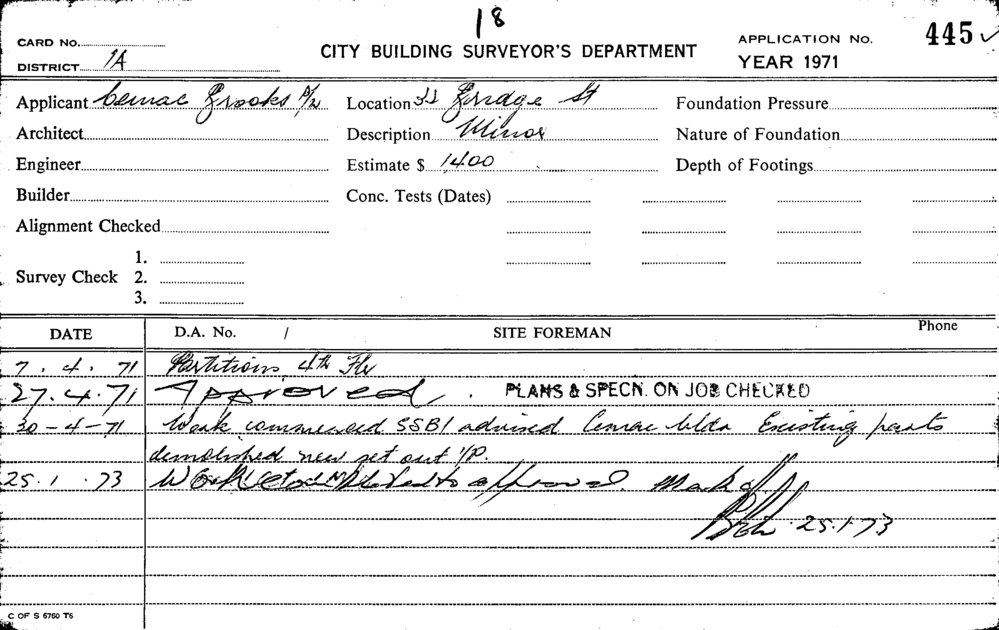 18
CARD No.
DISTRICT 1A
CITY BUILDING SURVEYOR'S DEPARTMENT
APPLICATION No. 445 ✓
YEAR 1971
Applicant Cemac Brooks P/L Location Bridge St Foundation Pressure
Architect Description Minor Nature of Foundation
Engineer Estimate $ 1400 Depth of Footings
Builder Conc. Tests (Dates)
Alignment Checked
1.
Survey Check 2.
3.
DATE D.A. No. / SITE FOREMAN Phone
7.4.71 Partitions 4th Flr
27.4.71 Approved. PLANS & SPECN. ON JOB CHECKED
30-4-71 Work commenced SSB1 advised Cemac bldn Existing parts
demolished new set out I/P.
25.1.73 Work to approval. Mark off.
25.1.73
C OF S 6760 T5